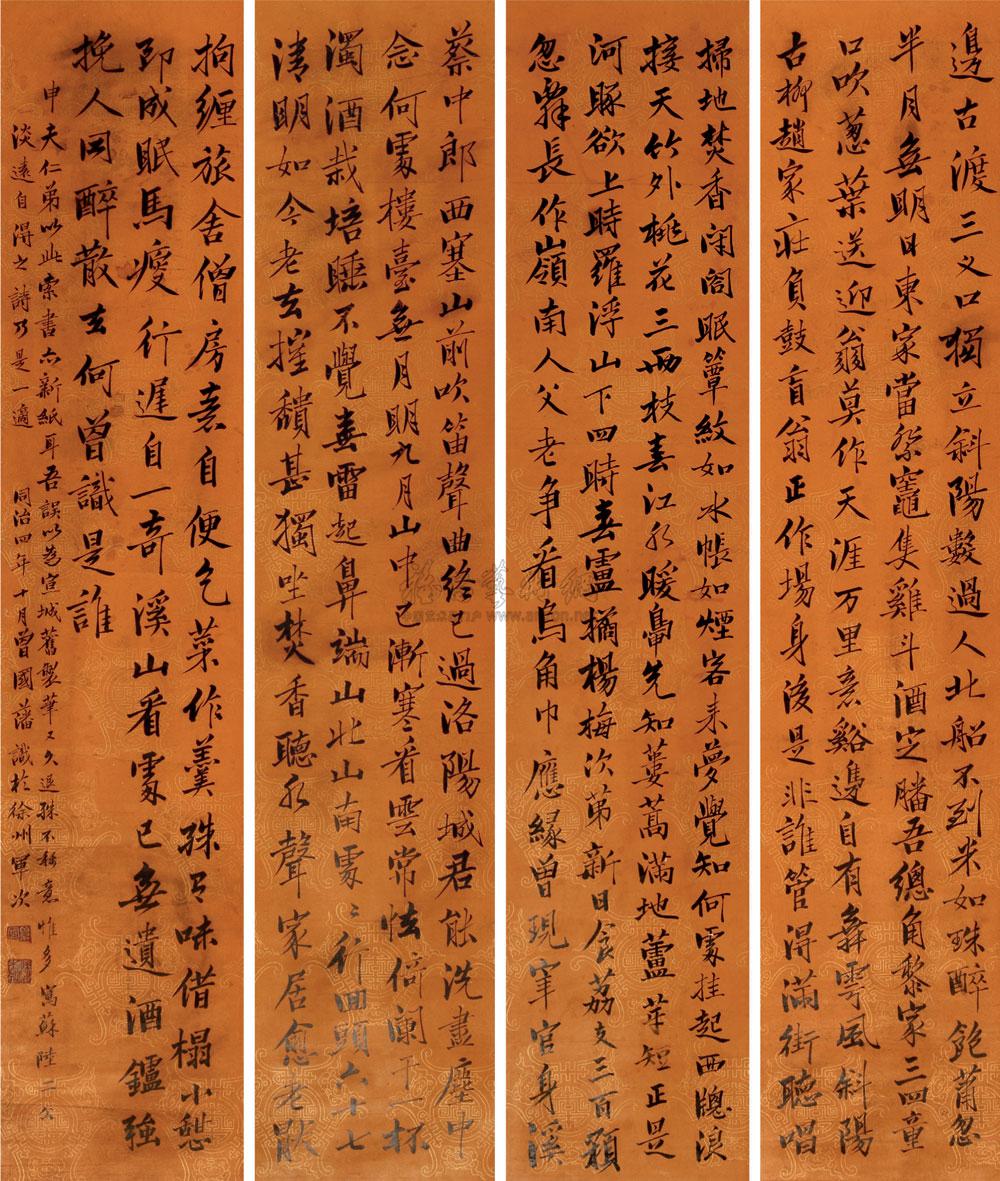 邊古渡三叉口獨立斜陽數過人北船不到米如珠醉飽蕭忽
半月無明日東家當祭竈隻雞斗酒定膰吾總角黎家三四童
口吹蔥葉送迎翁莫作天涯万里意谿邊自有舞雩風斜陽
古柳趙家莊負鼓盲翁正作場身後是非誰管得滿街聽唱
掃地焚香閉閣眠簟紋如水帳如煙客來夢覺知何處挂起西牕浪
接天竹外桃花三兩枝春江水暖鳧先知蔞蒿滿地蘆芽短正是
河豚欲上時羅浮山下四時春盧橘楊梅次第新日食荔支三百顆
忽辭長作嶺南人父老爭看烏角巾應緣曾現宰官身溪
蔡中郎西塞山前吹笛聲曲終已過洛陽城君能洗盡塵中
念何處樓臺無月明九月山中已漸寒看雲常怯倚闌干一杯
濁酒栽培睡不覺春雷起鼻端山北山南處〻行回頭六十七
清明如今老去摧頹甚獨坐焚香聽水聲家居愈老厭
拘纏旅舍僧房意自便乞菜作羹殊有味借榻小憩
即成眠馬瘦行遲自一奇溪山看處已無遺酒鑪強
挽人同醉散去何曾識是誰
申夫仁弟以此索書亦新紙耳吾誤以為宣城舊製筆又久退殊不稱意惟多寫蘇陸二公
淡遠自得之詩乃是一適 同治四年十月曾國藩識於徐州軍次